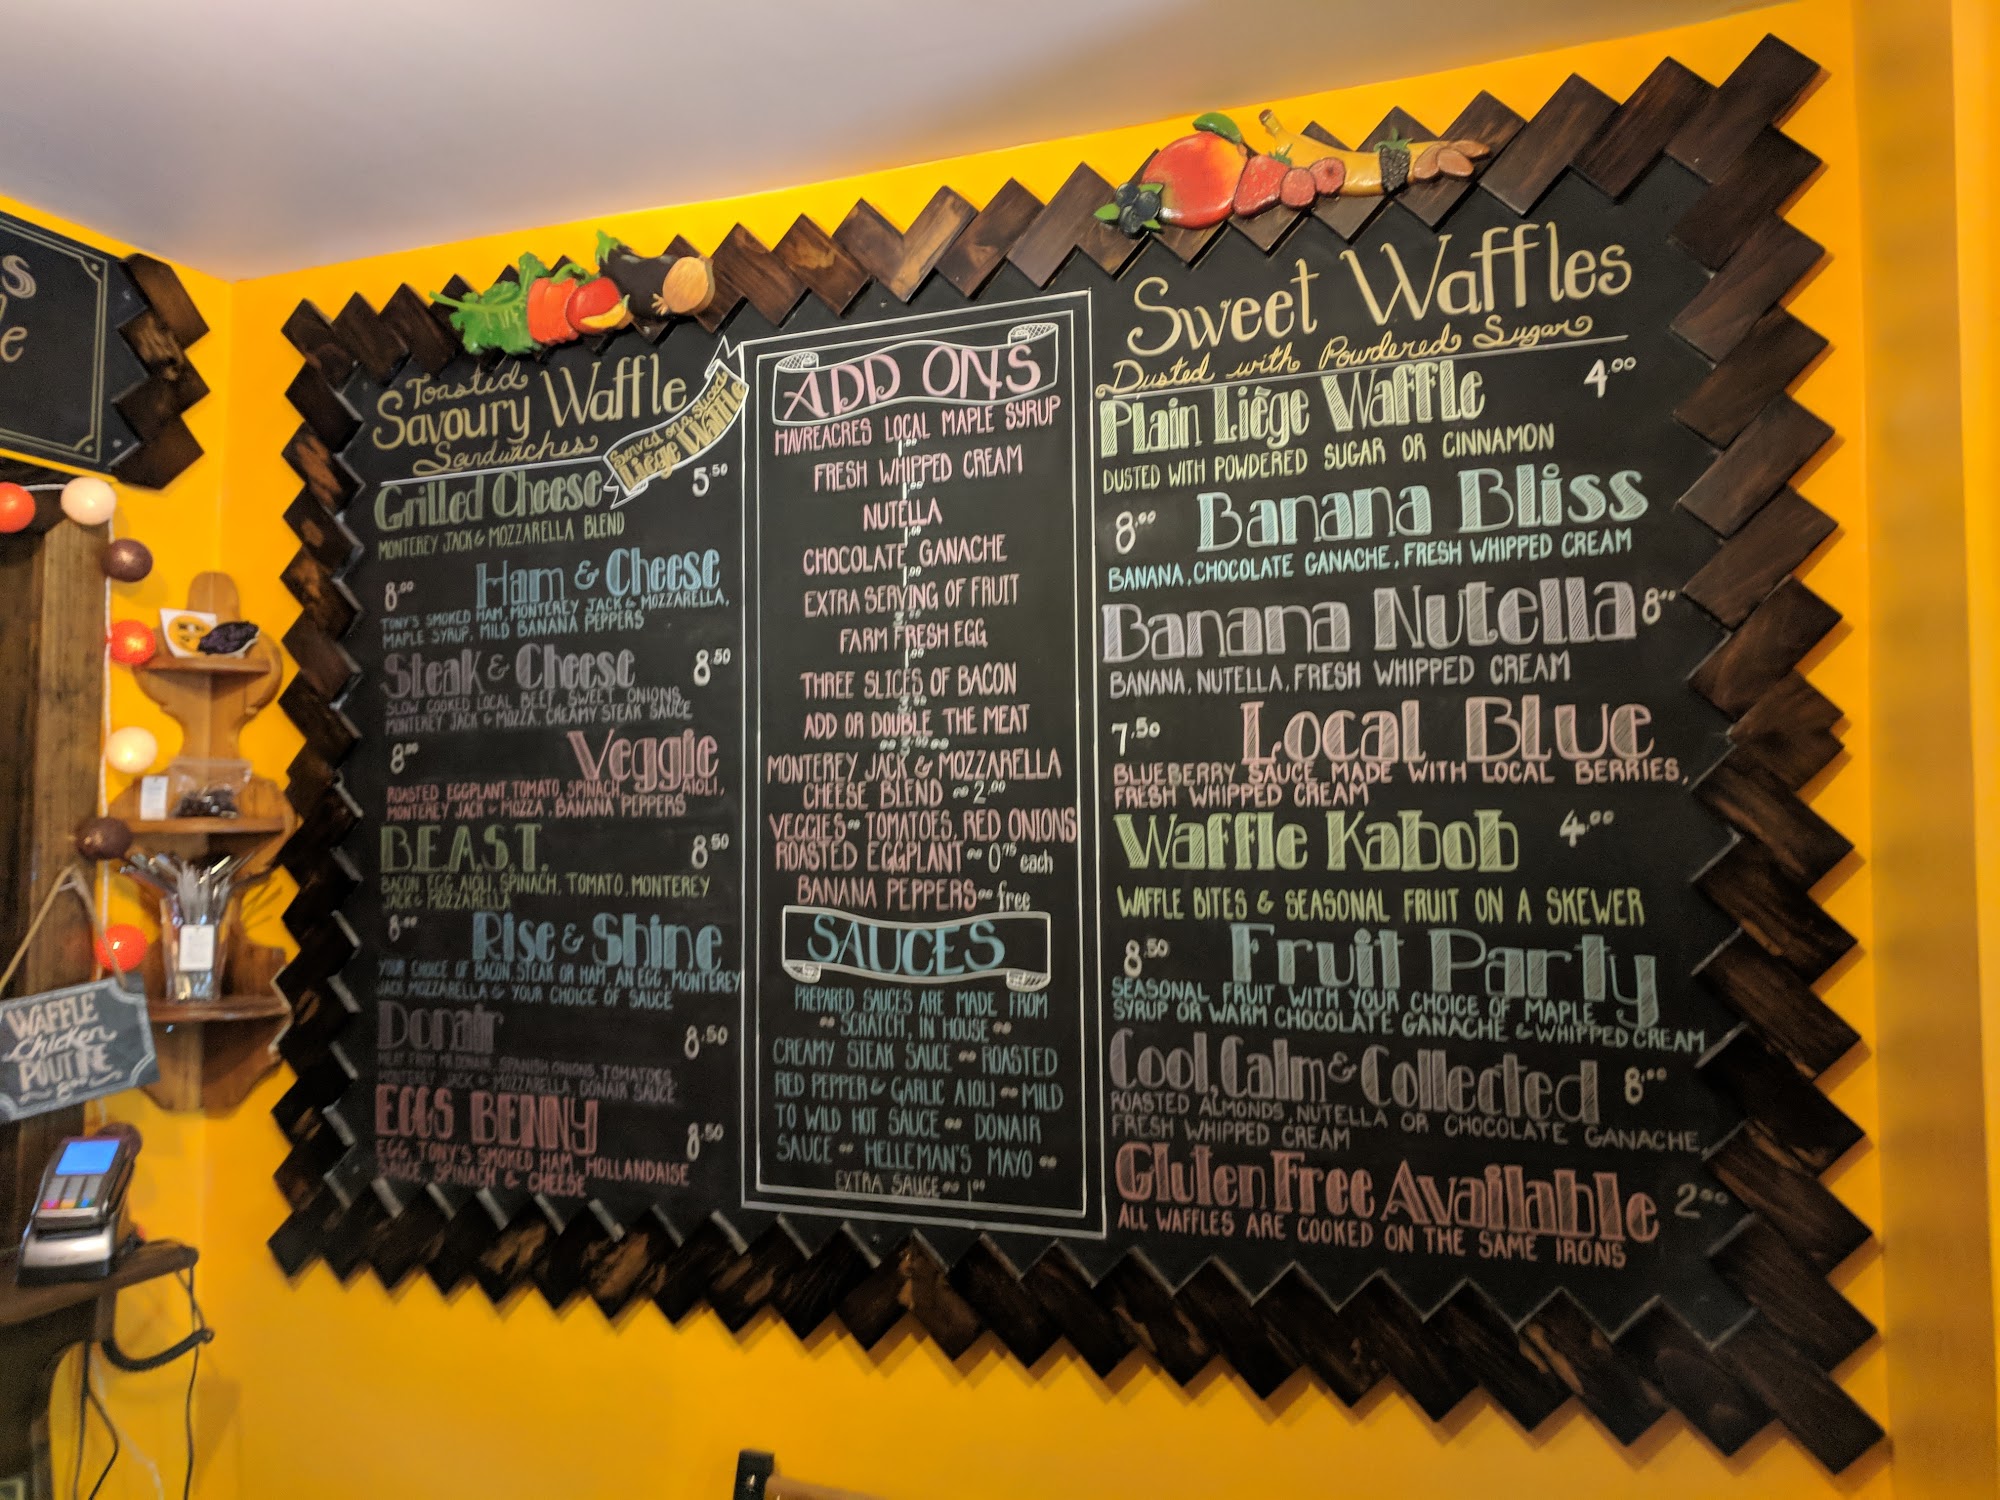 s
e
WAFFLE
Chicken
POUTINE
8.00
Toasted
Savoury Waffle
Sandwiches
Served on a sliced
Liège Waffle
Grilled Cheese 5.50
MONTEREY JACK & MOZZARELLA BLEND
8.00 Ham & Cheese
TONY'S SMOKED HAM, MONTEREY JACK & MOZZARELLA,
MAPLE SYRUP, MILD BANANA PEPPERS
Steak & Cheese 8.50
SLOW COOKED LOCAL BEEF, SWEET ONIONS,
MONTEREY JACK & MOZZA, CREAMY STEAK SAUCE
8.00 Veggie
ROASTED EGGPLANT, TOMATO, SPINACH, AIOLI,
MONTEREY JACK & MOZZA, BANANA PEPPERS
B.E.A.S.T. 8.50
BACON, EGG, AIOLI, SPINACH, TOMATO, MONTEREY
JACK & MOZZARELLA
8.00 Rise & Shine
YOUR CHOICE OF BACON, STEAK OR HAM, AN EGG, MONTEREY
JACK, MOZZARELLA & YOUR CHOICE OF SAUCE
Donair 8.50
MEAT FROM MR. DONAIR, SPANISH ONIONS, TOMATOES,
MONTEREY JACK & MOZZARELLA, DONAIR SAUCE
EGGS BENNY 8.50
EGG, TONY'S SMOKED HAM, HOLLANDAISE
SAUCE, SPINACH & CHEESE
ADD ONS
HAVREACRES LOCAL MAPLE SYRUP
1.00
FRESH WHIPPED CREAM
1.00
NUTELLA
1.00
CHOCOLATE GANACHE
1.00
EXTRA SERVING OF FRUIT
FARM FRESH EGG
1.00
THREE SLICES OF BACON
ADD OR DOUBLE THE MEAT
3.00
MONTEREY JACK & MOZZARELLA
CHEESE BLEND 2.00
VEGGIES TOMATOES, RED ONIONS
ROASTED EGGPLANT 0.75 each
BANANA PEPPERS free
SAUCES
PREPARED SAUCES ARE MADE FROM
SCRATCH, IN HOUSE
CREAMY STEAK SAUCE ROASTED
RED PEPPER & GARLIC AIOLI MILD
TO WILD HOT SAUCE DONAIR
SAUCE HELLEMAN'S MAYO
EXTRA SAUCE 1.00
Sweet Waffles
Dusted with Powdered Sugar
Plain Liège Waffle 4.00
DUSTED WITH POWDERED SUGAR OR CINNAMON
8.00 Banana Bliss
BANANA, CHOCOLATE GANACHE, FRESH WHIPPED CREAM
Banana Nutella 8.00
BANANA, NUTELLA, FRESH WHIPPED CREAM
7.50 Local Blue
BLUEBERRY SAUCE MADE WITH LOCAL BERRIES,
FRESH WHIPPED CREAM
Waffle Kabob 4.00
WAFFLE BITES & SEASONAL FRUIT ON A SKEWER
8.50 Fruit Party
SEASONAL FRUIT WITH YOUR CHOICE OF MAPLE
SYRUP OR WARM CHOCOLATE GANACHE & WHIPPED CREAM
Cool, Calm & Collected 8.00
ROASTED ALMONDS, NUTELLA OR CHOCOLATE GANACHE,
FRESH WHIPPED CREAM
Gluten Free Available 2.00
ALL WAFFLES ARE COOKED ON THE SAME IRONS